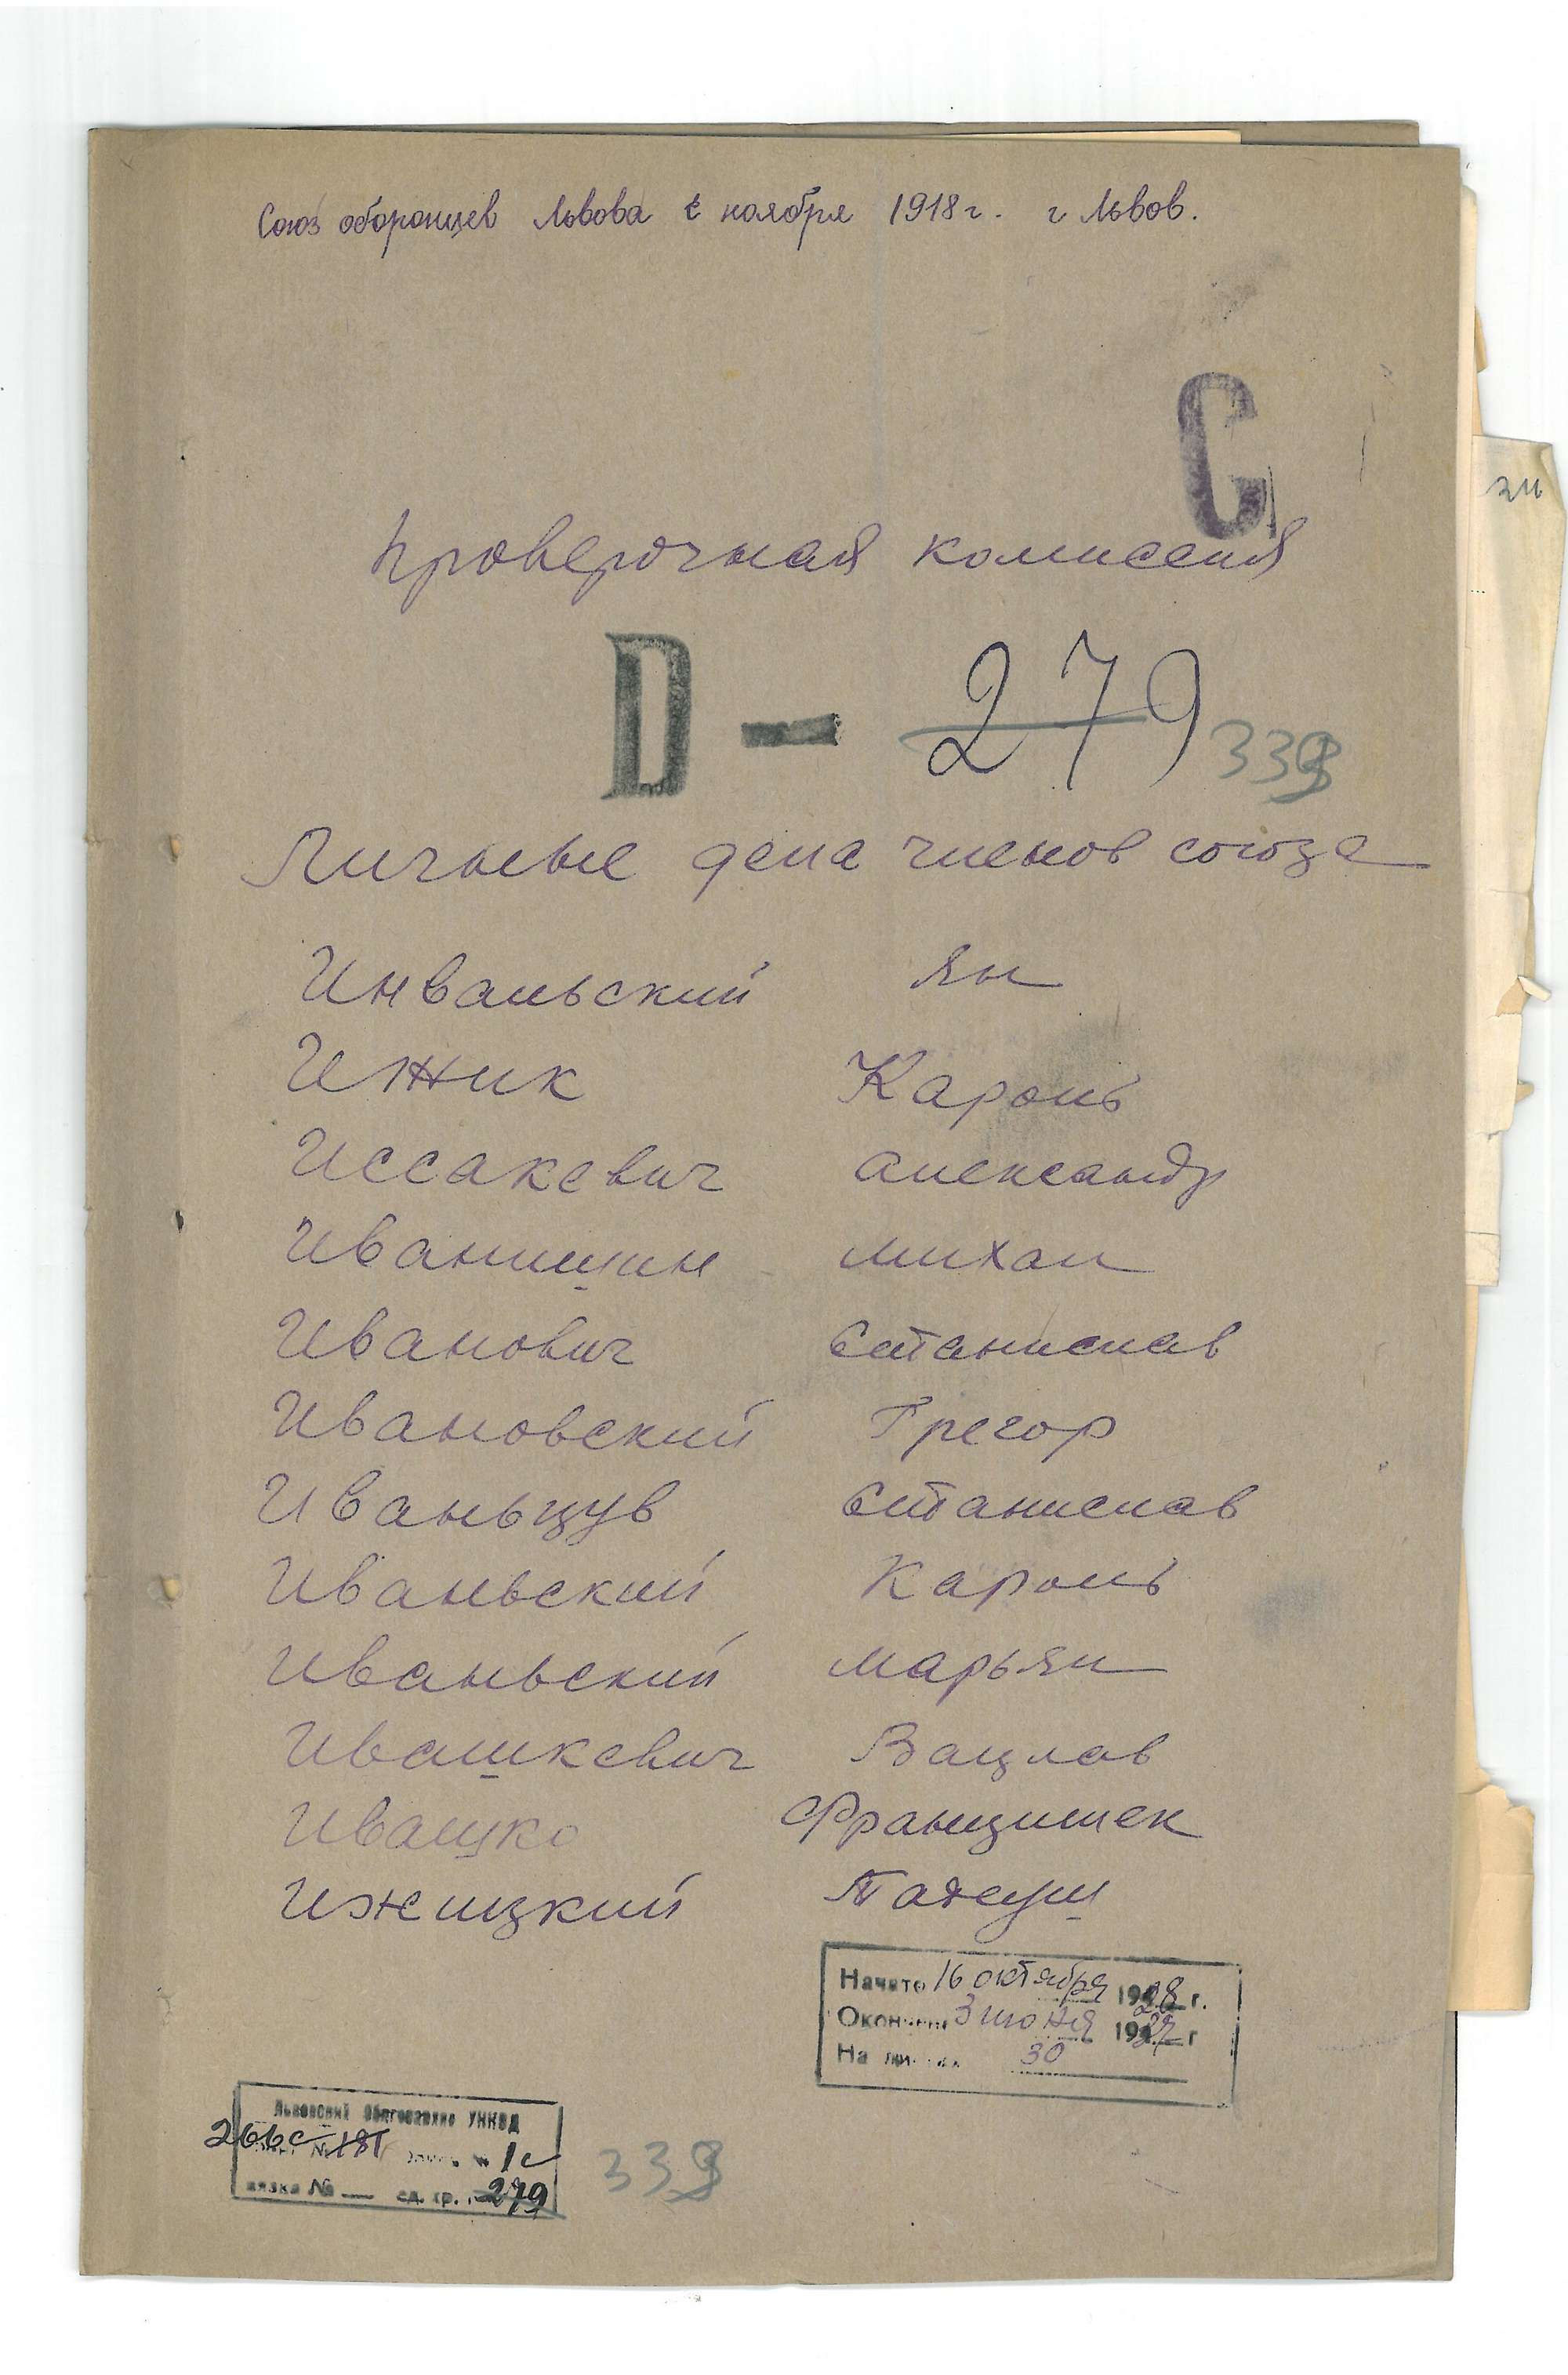 Союз оборонцев Львова с ноября 1918 г. г Львов.
С
Проверочная комиссия
D — 279 339
Личные дела членов союза
Инвальский Ян
Ижик Кароль
Иссакевич Александр
Иванишин Михал
Иванович Станислав
Ивановский Грегор
Иваньцув Станислав
Иваньский Кароль
Иваньский Марьян
Ивашкевич Вацлав
Ивашко Францишек
Ижицкий Тадеуш
Начато 16 октября 1928 г.
Окончено 3 июня 19 г
На листах 30
Львовский Облгосархив УНКВД
266с № 181 1с
вязка № — ед. хр. 279
339